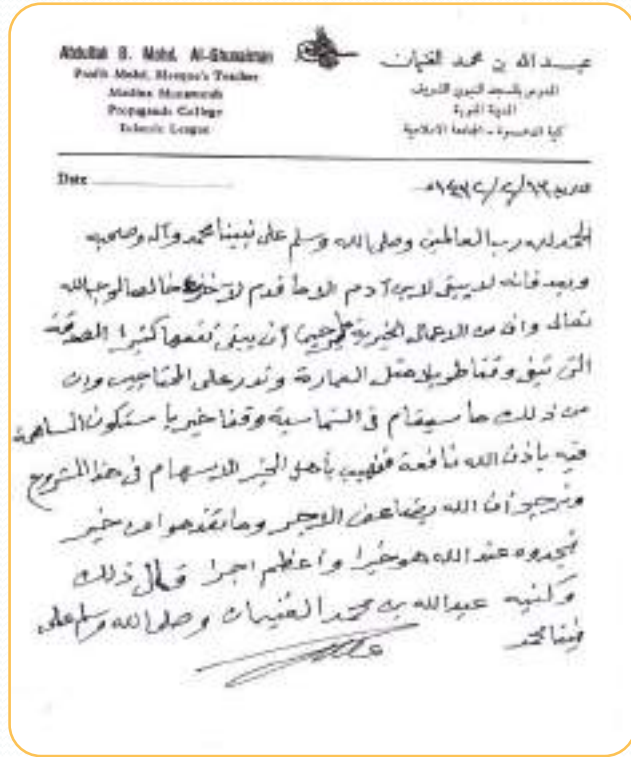 Abdullah B. Mohd. Al-Ghunaiman
Mosque's Teacher
Madina Munawarah
Propaganda College
Islamic League
عبد الله بن محمد الغنيمان
المدرس بالمسجد النبوي الشريف
المدينة المنورة
كلية الدعوة - الجامعة الاسلامية
Date
التاريخ
الحمد لله رب العالمين وصلى الله وسلم على نبينا محمد وآله وصحبه
وبعد فانه لا يبقى لابن آدم الا ما قدم لآخرته خالصا لوجه الله
تعالى وان من الاعمال الخيرية أن يبقى نفعها كثيرا الصدقة
التي تبقى وقفا طويلا مثل العمارة وتدر على المحتاجين وان
من ذلك ما سيقام في الشماسية وقفا خيريا ستكون المساهمة
فيه باذن الله نافعة فنهيب بأهل الخير الاسهام في هذا المشروع
ونرجو أن الله يضاعف الاجر وما تقدموا من خير
تجدوه عند الله هو خيرا وأعظم اجرا قال ذلك
وكتبه عبدالله بن محمد الغنيمان وصلى الله وسلم على
نبينا محمد